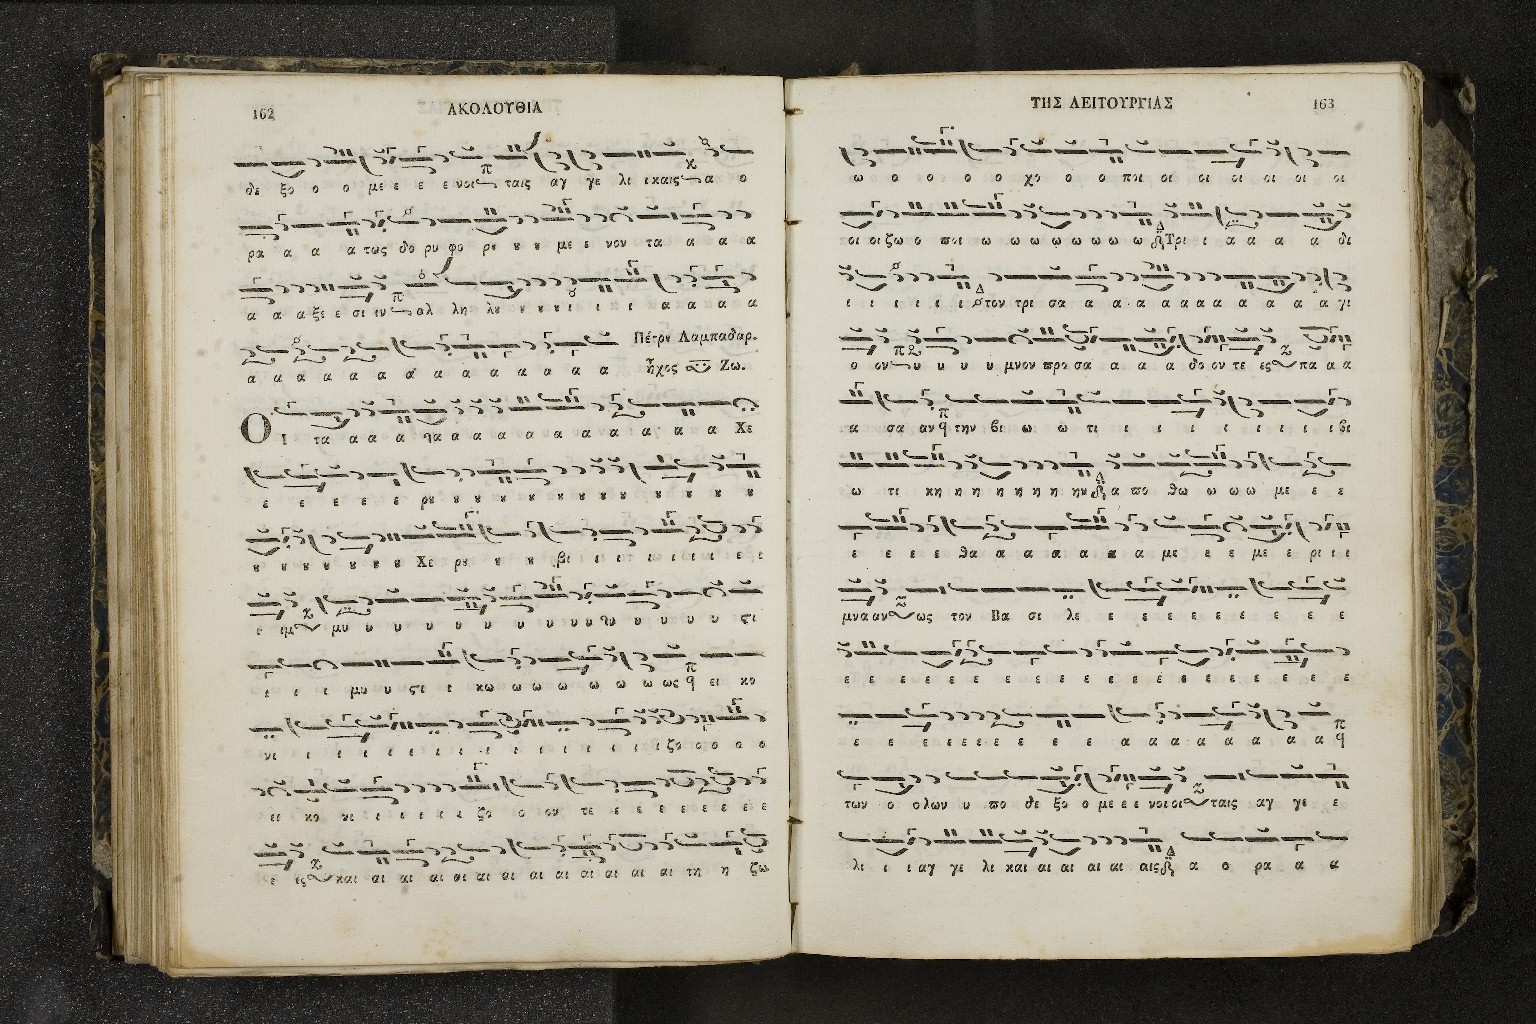 162 ΑΚΟΛΟΥΘΙΑ
δε ξο ο ο με ε ε ε νοι ταις αγ γε λι ι καις α ο
ρα α α α τως δο ρυ φο ρȣ ȣ ȣ με ε νον τα α α α
α α α ξε ε σι ιν αλ λη λȣ ȣ ȣ ȣ ι ι ι α α α α
α α α α α α α α α α α α α Πέτρȣ Λαμπαδαρ. ἦχος Ζω.
Οι τα α α α α α α α α α α α α α α α Χε
ε ε ε ε ε ρȣ ȣ ȣ ȣ ȣ ȣ ȣ ȣ ȣ ȣ ȣ ȣ
ȣ ȣ ȣ ȣ ȣ ȣ ȣ Χε ρȣ ȣ ȣ βι ι ι ι ι ι ι ι ε ε
ι ιμ μυ υ υ υ υ υ υ υ υ υ υ υ υ υ υ ϛι
ι ι ι μυ υ ϛι ι κω ω ω ω ω ω ω ως ει κο
νι ι ι ι ι ι ι ι ι ι ι ι ι ι ι ζο ο ο ο ο
ει κο νι ι ι ι ι ι ζο ο ον τε ε ε ε ε ε ε ε
ε ες και αι αι αι αι αι αι αι αι αι αι αι αι τη η ζω
ΤΗΣ ΛΕΙΤΟΥΡΓΙΑΣ 163
ω ο ο ο ο χο ο ο ποι οι οι οι οι οι οι
οι οι ζω ο ποι ω ω ω ω ω ω ω ω Τρι ι α α α α δι
ι ι ι ι ι ι τον τρι σα α α α α α α α α α α α γι
ο ον υ υ υ υ μνον προ σα α α α δο ον τε ες πα α α
α σα αν την βι ω ω τι ι ι ι ι ι ι ι ι βι
ω τι κη η η η η η η ην α πο θω ω ω ω με ε ε
ε ε ε ε θα α α α α α α με ε ε με ε ρι ι ι
μνα αν ως τον Βα σι λε ε ε ε ε ε ε ε ε
ε ε ε ε ε ε ε ε ε ε ε ε ε ε ε ε ε ε ε
ε ε ε ε ε ε ε ε ε ε α α α α α α α α
των ο ολων υ πο δε ξο ο με ε ε νοι οι ταις αγ γε ε
λι ι ι αγ γε λι και αι αι αι αι αις α ο ρα α α